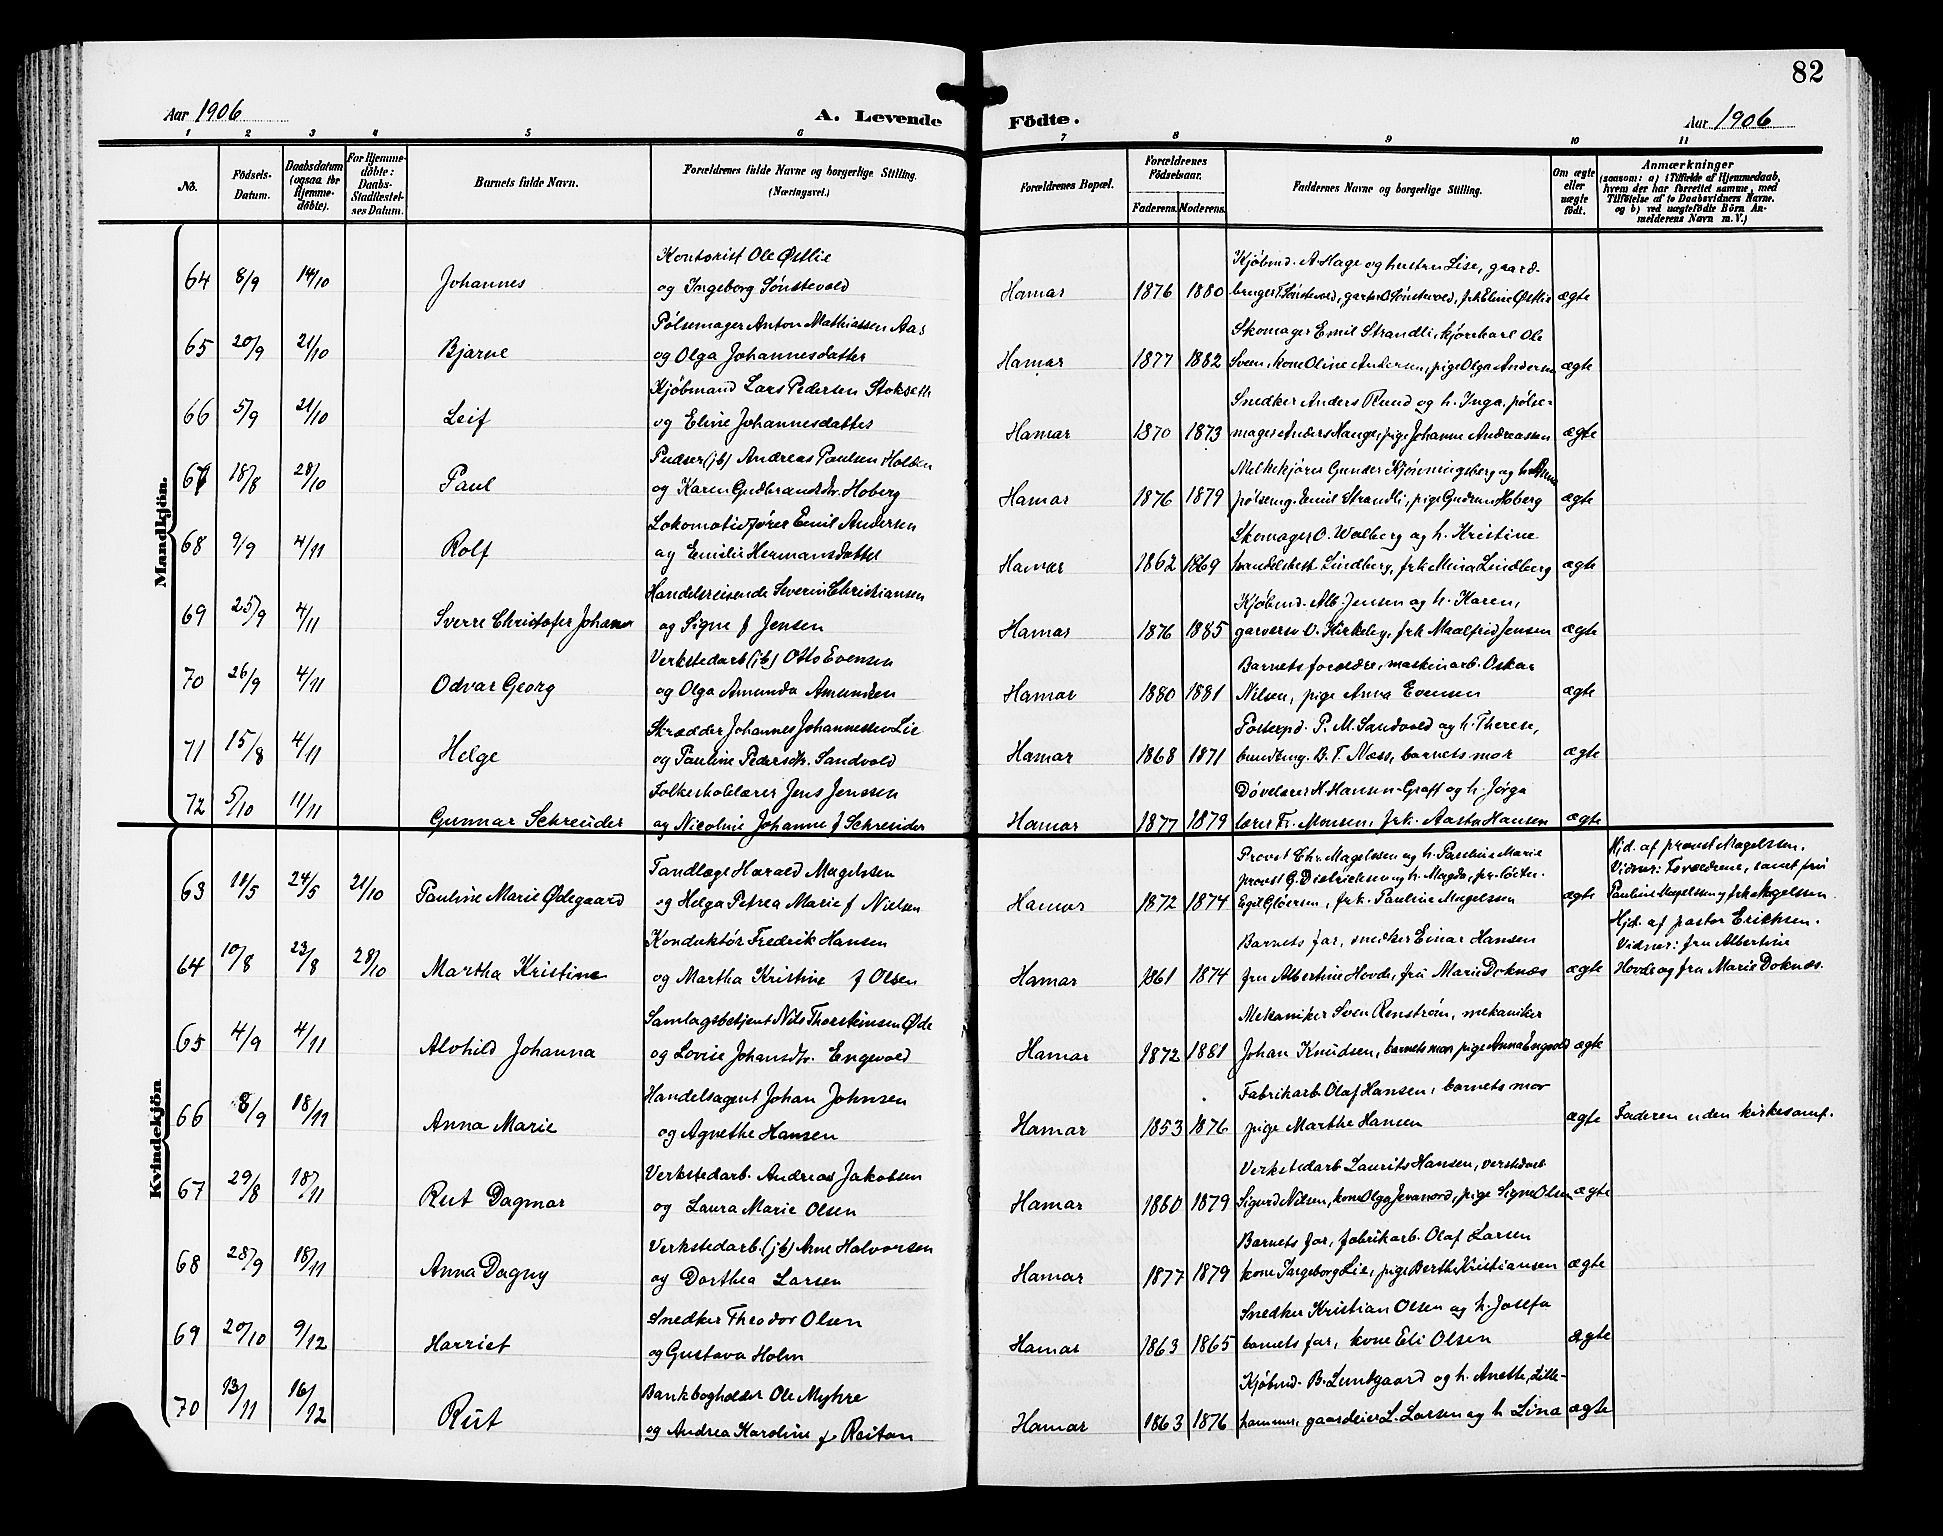 82
Aar 1906
A. Levende Födte.
Aar 1906
1 2 3 4 5 6 7 8 9 10 11
No.
Födsels-Datum.
Daabsdatum (ogsaa for Hjemmedöbte).
For Hjemmedöbte: Daabs-Stadfæstelses Datum.
Barnets fulde Navn.
Forældrenes fulde Navne og borgerlige Stilling. (Næringsvei.)
Forældrenes Bopæl.
Forældrenes Födselsaar.
Faderens. Moderens.
Faddernes Navne og borgerlige Stilling.
Om ægte eller uægte födt.
Anmærkninger (saasom: a) i Tilfælde af Hjemmedaab, hvem der har forrettet samme, med Tilföielse af to Daabsvidners Navne. og b) ved uægtefödte Börn Anmelderens Navn m. V.)
Mandkjön.
Kontorist Ole Østlie Kjøbmd. A. Hage og hustru Lise, gaard-
64 8/9 14/10 Johannes og Ingeborg Sønstevold Hamar 1876 1880 bruger T. Sønstevold, gartn. O. Sønstevold, frk Eline Østlie ægte
Pølsemager Anton Mathiassen Aas Skomager Emil Strandli, kjørekarl Ole
65 20/9 21/10 Bjarne og Olga Johannesdatter Hamar 1877 1882 Sveen, kone Oline Andersen, pige Olga Andersen ægte
Kjøbmand Lars Pedersen Stokseth Snedker Anders Rund og h. Inga, pølse-
66 5/9 21/10 Leif og Eline Johannesdatter Hamar 1870 1873 mager Anders Hauge, pige Johanne Andreassen ægte
Pudser (jb) Andreas Paulsen Holden Melkekjører Gunder Kjønningsberg og h.
67 18/8 28/10 Paul og Karen Gudbrandsdtr. Hoberg Hamar 1876 1879 pølsemg. Emil Strandli, pige Gudrun Hoberg ægte
Lokomotivfører Emil Andersen Skomager O. Walberg og h. Kristine
68 9/9 4/11 Rolf og Emilie Hermansdatter Hamar 1862 1869 handelsbest. Lindberg, frk Mina Lindberg ægte
Handelsreisende Severin Christiansen Kjøbmd. Alb. Jensen og h. Karen,
69 25/9 4/11 Sverre Christofer Johan og Signe f Jensen Hamar 1876 1885 garversv O. Kirkeby, frk Maalfrid Jensen ægte
Verkstedarb (jb) Otto Evensen Barnets forældre, maskinarb. Oskar
70 26/9 4/11 Odvar Georg og Olga Amunda Amundsen Hamar 1880 1881 Nilsen, pige Anna Evensen ægte
Skrædder Johannes Johannessen Lie Postexpd. P. M. Sandvold og h. Therese,
71 15/8 4/11 Helge og Pauline Pedersdtr. Sandvold Hamar 1868 1871 bundtmg. B. T. Næss, barnets mor ægte
Folkeskolelærer Jens Jenssen Døvelærer H. Hansen-Graff og h. Jørga
72 5/10 11/11 Gunnar Schreuder og Nicoline Johanne f Schreuder Hamar 1877 1879 lærer Fr. Monsen, frk. Aasta Hansen ægte
Kvindekjön
Tandlæge Harald Magelssen Provst Chr. Magelssen og h. Pauline Marie Hjd. af provst Magelssen.
63 11/5 24/5 21/10 Pauline Marie Ødegaard og Helga Petrea Marie f Nielsen Hamar 1872 1874 provst G. Dietrichson og h. Magda, Egil Gløersen, frk. Pauline Magelssen ægte Vidner: Forældrene, samt fru Pauline Magelssen og frk Magelssen.
Konduktør Fredrik Hansen Barnets far, snedker Einar Hansen Hjd. af pastor Erichsen.
64 10/8 23/8 28/10 Martha Kristine og Martha Kristine f Olsen Hamar 1861 1874 fru Albertine Hovde, fru Marie Doknæs ægte Vidner: fru Albertine Hovde og fru Marie Doknæs.
Samlagsbetjent Nils Thorstensen Øde Mekaniker Sven Renstrøm, mekaniker
65 4/9 4/11 Alvhild Johanna og Lovise Johansdtr. Engevold Hamar 1872 1881 Johan Knudsen, barnets mor, pige Anna Engevold ægte
Handelsagent Johan Johnsen Fabrikarb Olaf Hansen, barnets mor
66 8/9 18/11 Anna Marie og Agnethe Hansen Hamar 1853 1876 pige Marthe Hansen ægte Faderen uden kirkesamf.
Verkstedarb. Andreas Jakobsen Verkstedarb Laurits Hansen, verkstedarb
67 29/8 18/11 Rut Dagmar og Laura Marie Olsen Hamar 1880 1879 Sigurd Nilsen, kone Olga Jevanord, pige Signe Olsen ægte
Verkstedarb. (jb) Arne Halvorsen Barnets far, fabrikarb. Olaf Larsen
68 28/9 18/11 Anna Dagny og Dorthea Larsen Hamar 1877 1879 kone Ingeborg Lie, pige Berthe Kristiansen ægte
Snedker Theodor Olsen Snedker Kristian Olsen og h. Josefa
69 20/10 9/12 Harriet og Gustava Holm Hamar 1863 1865 barnets far, kone Eli Olsen ægte
Bankbogholder Ole Myhre Kjøbmd. B. Lundgaard og h. Anette, Lille-
70 13/11 16/12 Rut og Andrea Karoline f. Reitan Hamar 1863 1876 hammer, gaardeier L. Larsen og h Lina ægte